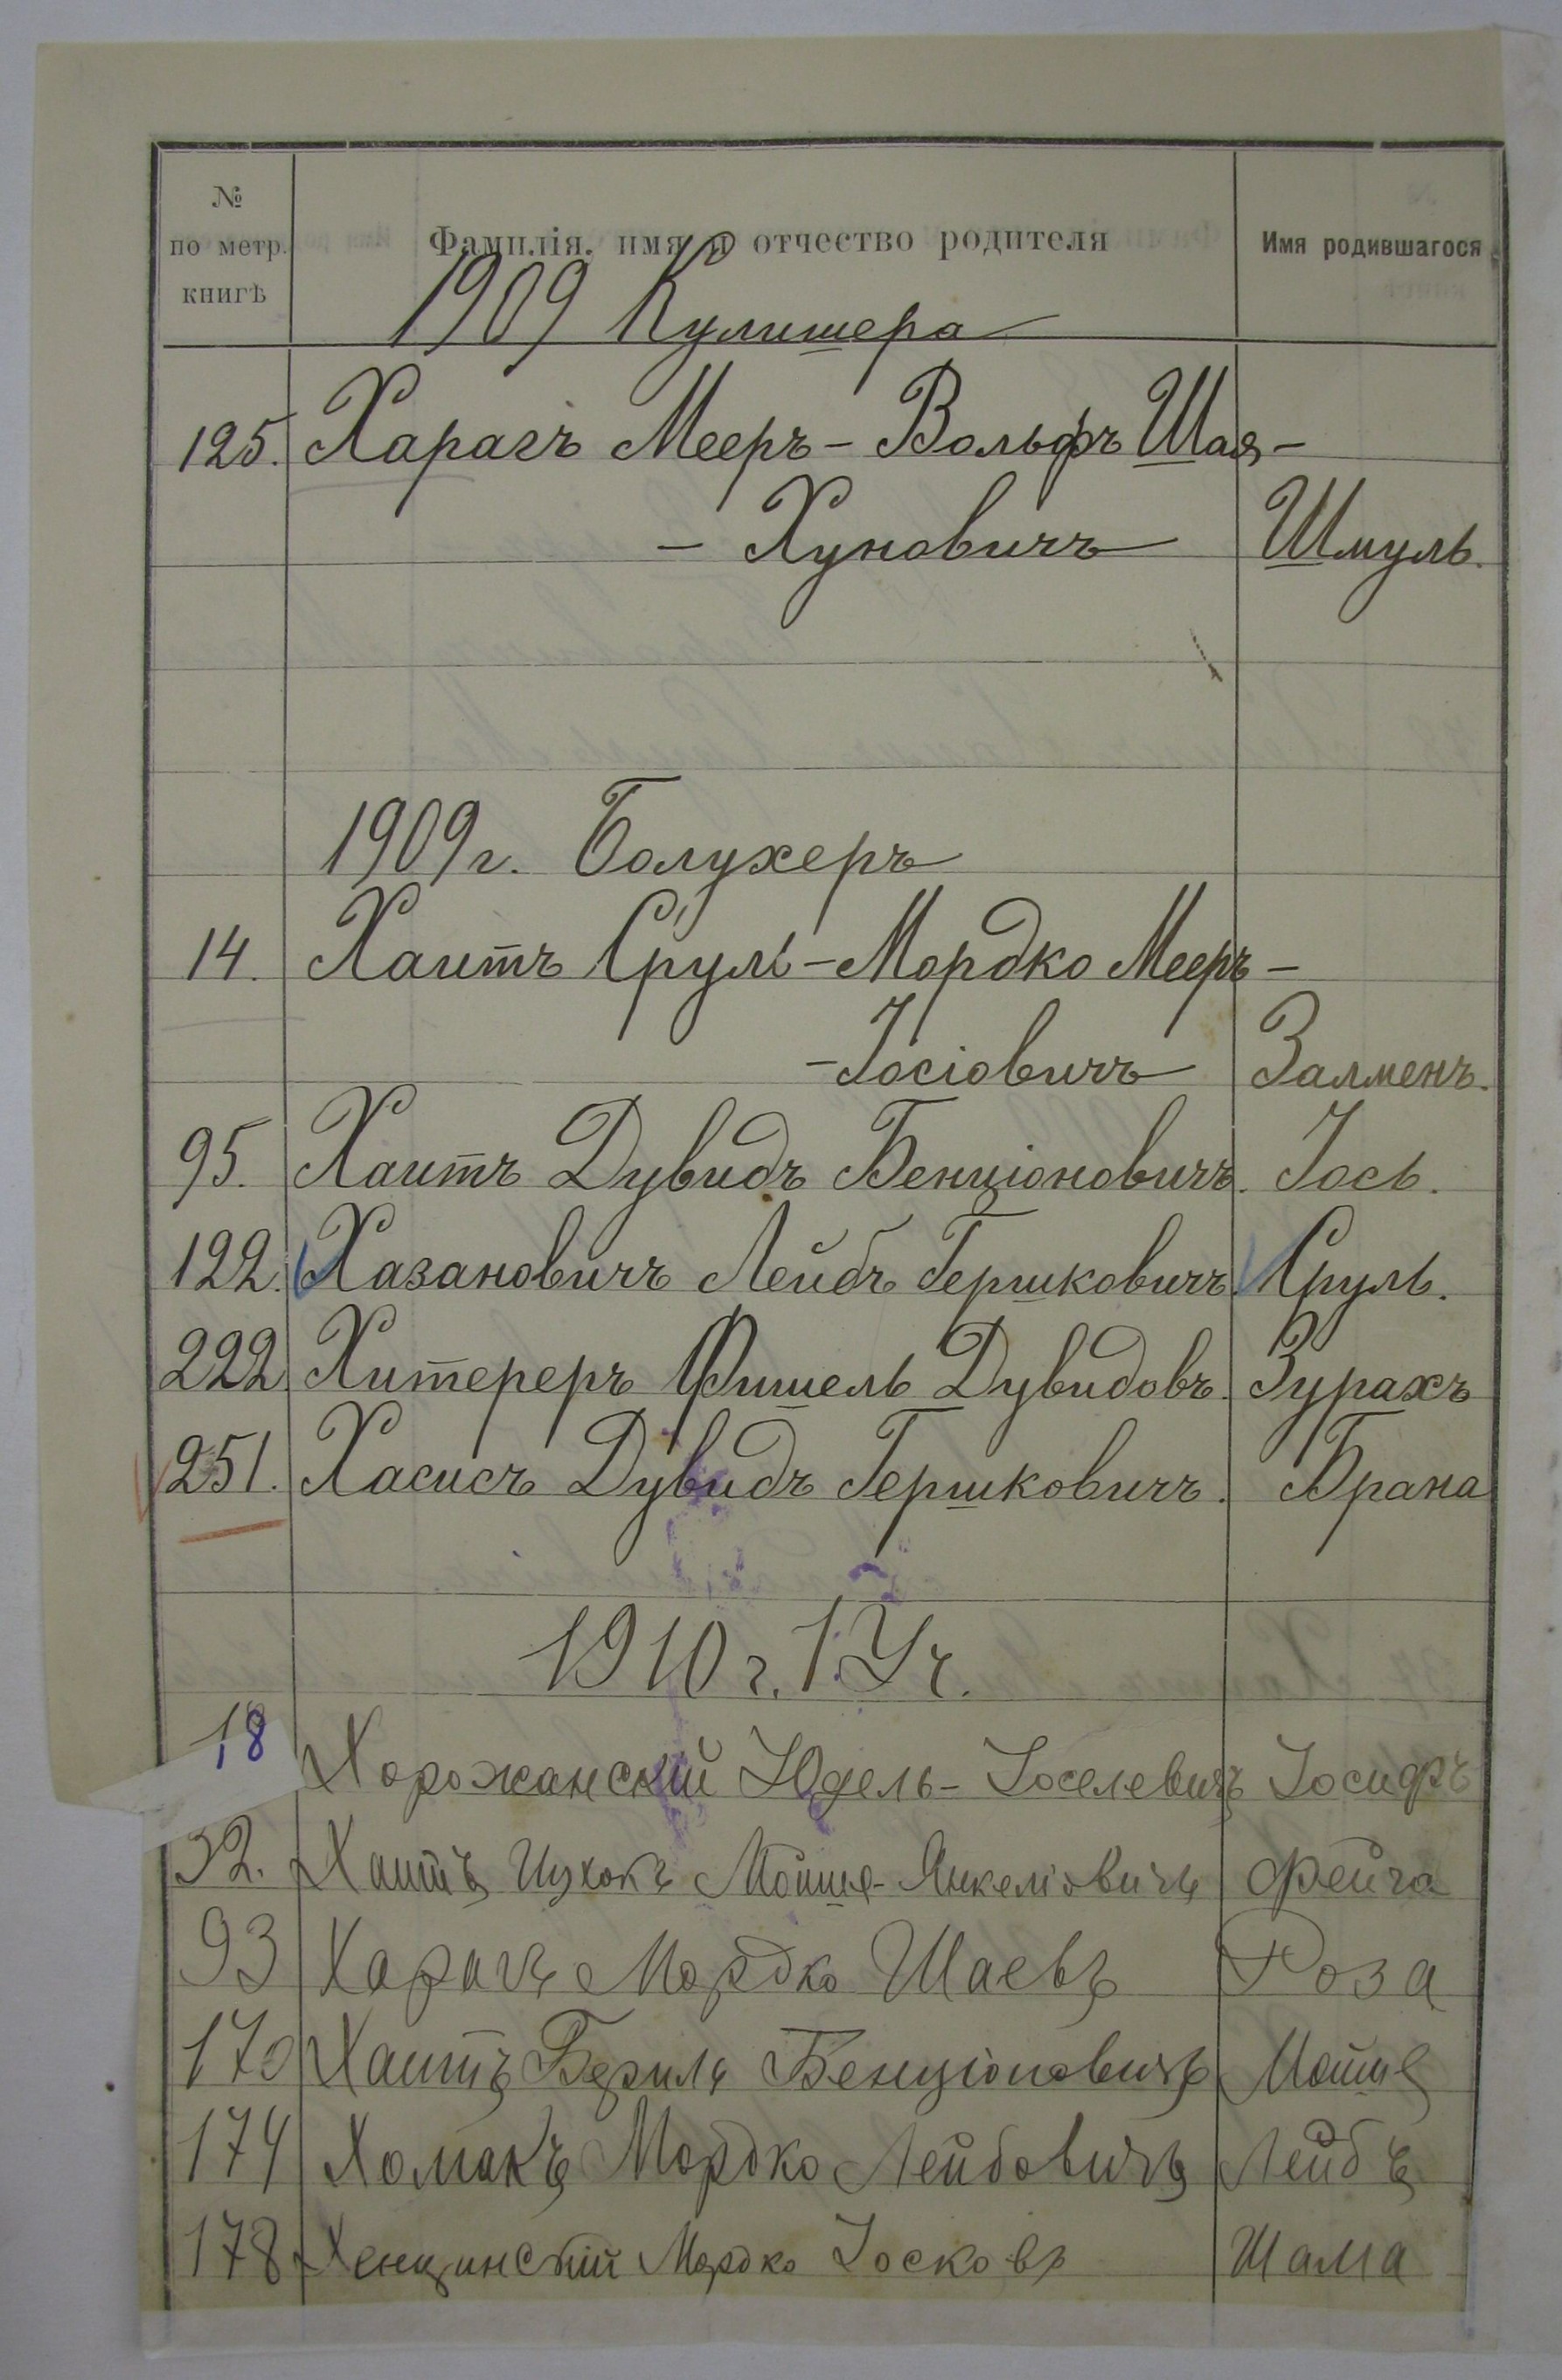 № по метр. книгѣ Фамилія, имя и отчество родителя Имя родившагося
1909 Кулишера
125. Харагъ Мееръ-Вольфъ Шая-
- Хуновичъ Шмуль.
1909 г. Болухеръ
14. Хаитъ Сруль-Мордко Мееръ-
-Іосіовичъ Залменъ.
95. Хаитъ Дувидъ Бенціоновичъ. Іось.
122. Хазановичъ Лейбъ Гершковичъ. Сруль.
222 Хитереръ Фишель Дувидовъ. Зурахъ
251. Хасисъ Дувидъ Гершковичъ. Брана
1910 г. 1 Уч.
18 Хорожанскій Юдель-Іоселевичъ Іосифъ
32. Хаитъ Ицхокъ Мойше-Янкеліовичъ Фейга
93 Харагъ Мордко Шаевъ Роза
170 Хаитъ Берилъ Бенціоновичъ Мойше
174 Хомакъ Мордко Лейбовичъ Лейбъ
178 Хенцинскій Мордко Іосковъ Шама